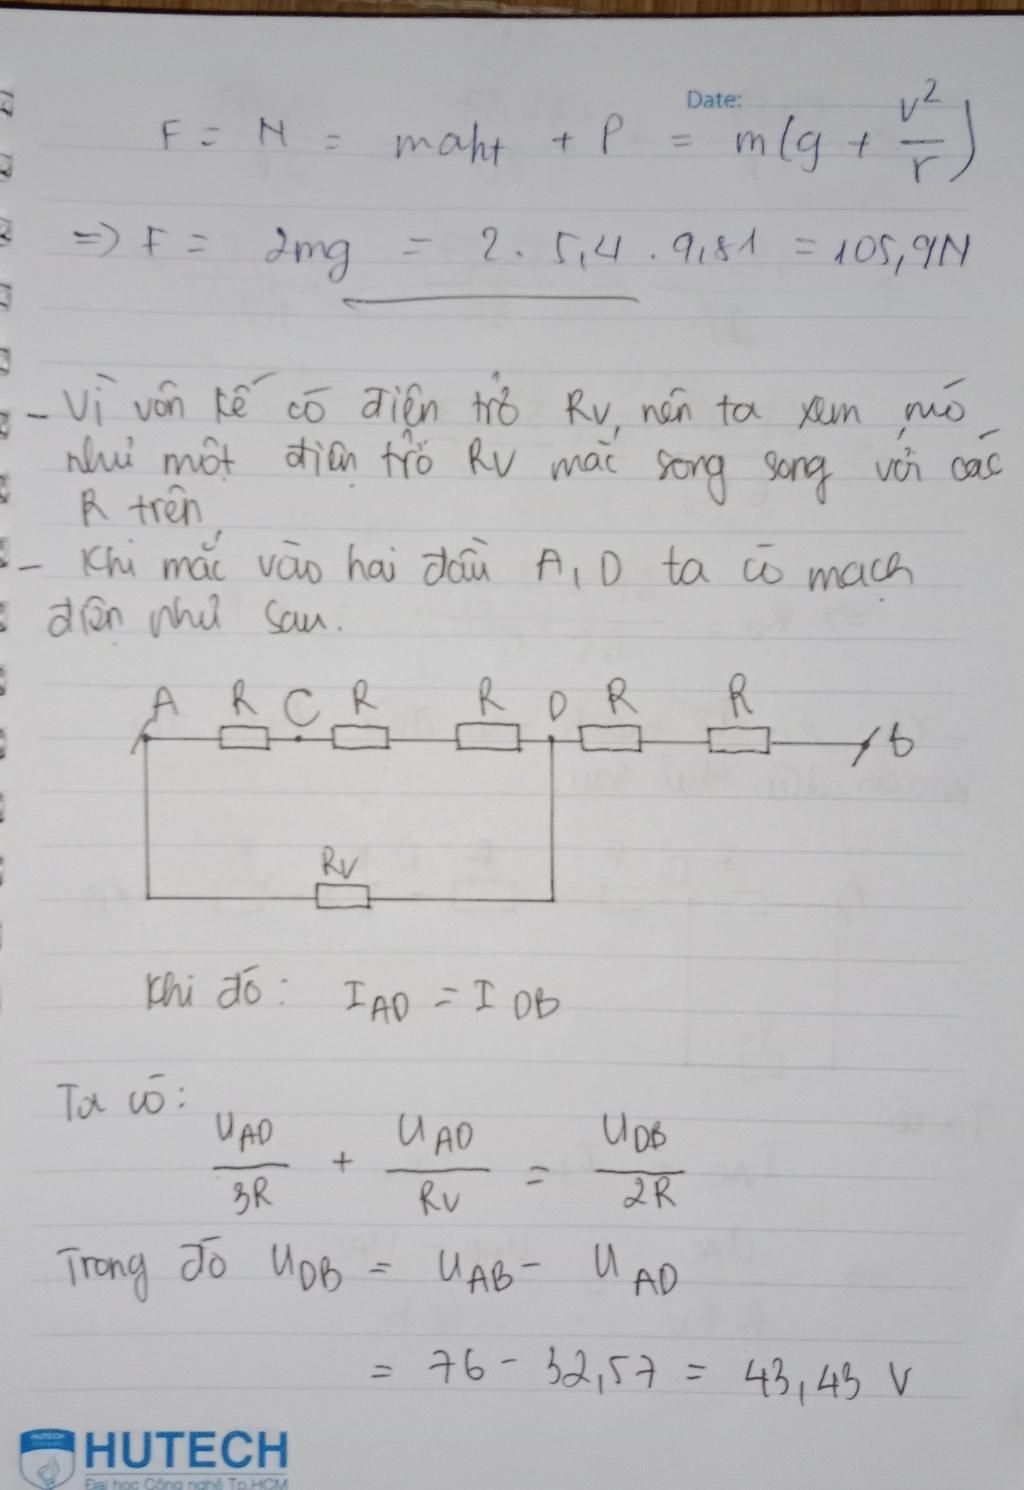 Date:
F = N = maht + P = m(g + v²/r)
=> F = 2mg = 2 . 5,4 . 9,81 = 105,9N
- Vì vôn kế có điện trở Rv, nên ta xem nó
như một điện trở Rv mắc song song với các
R trên
- Khi mắc vào hai đầu A, D ta có mạch
điện như sau.
A R C R R D R R B
Rv
Khi đó: I AD = I DB
Ta có:
U AD / 3R + U AD / Rv = U DB / 2R
Trong đó U DB = U AB - U AD
= 76 - 32,57 = 43,43 V
HUTECH
HUTECH
Đại học Công nghệ Tp.HCM